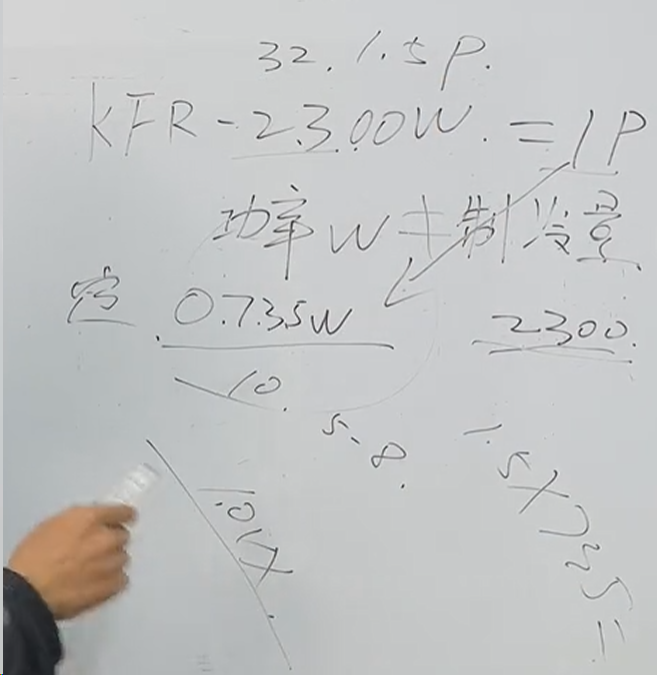 32. 1.5P.
KFR-2300W.=1P
功率W≠制冷量
0.735W 2300.
10.
5-8.
1.5X735=